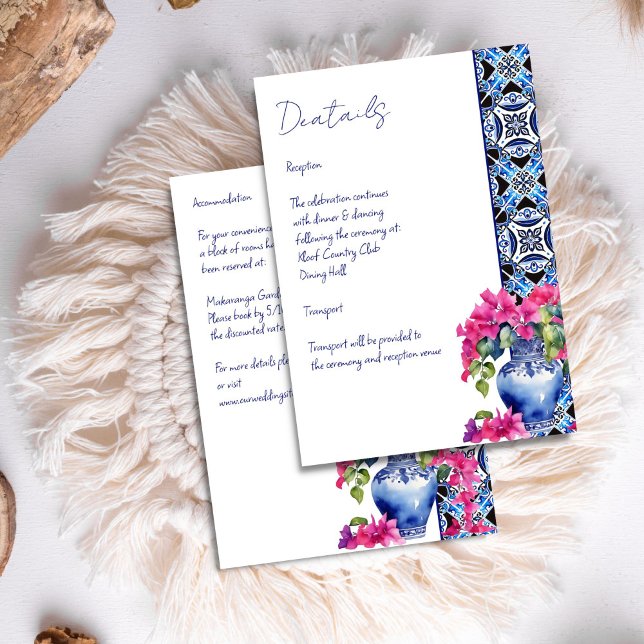 Deatails
Reception
The celebration continues
with dinner & dancing
following the ceremony at:
Kloof Country Club
Dining Hall
Transport
Transport will be provided to
the ceremony and reception venue
Accommodation
For your convenience
a block of rooms
been reserved at:
Makaranga
Please book by
the discounted rate
For more details
or visit